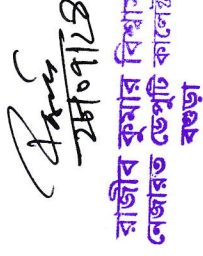 ২৮/০৭/২৪
রাজীব কুমার বিশ্বাস
নেজারত ডেপুটি কালেক্
বগুড়া